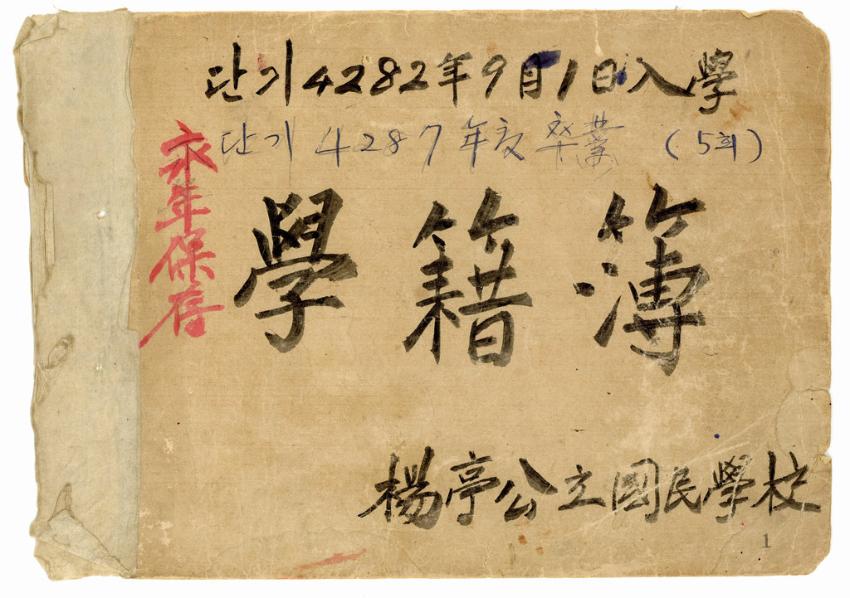 단기4282年9月1日入學
단기 4287年度 卒業 (5회)
永年保存
學籍簿
楊亭公立國民學校
1